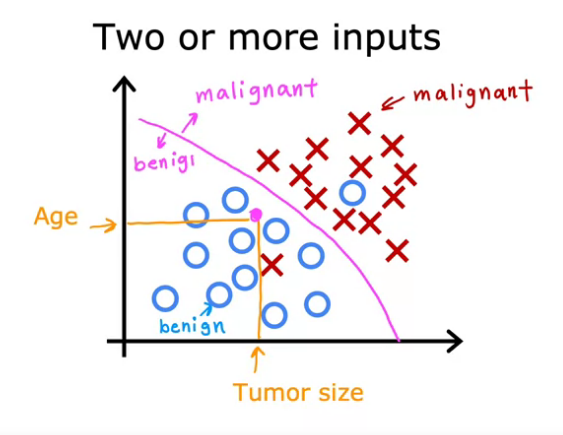 Two or more inputs
malignant
malignant
benigı
Age
benign
Tumor size